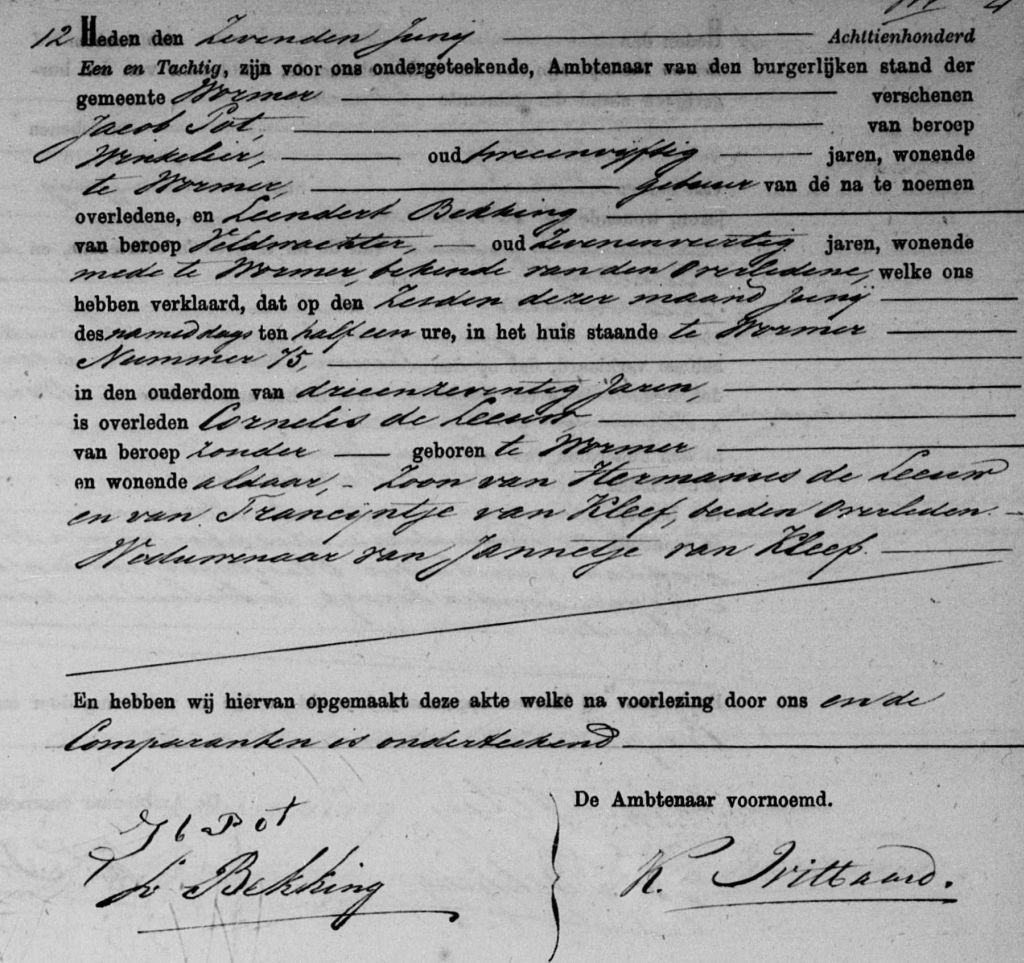 12 Heden den Zevenden Junij Achttienhonderd
Een en Tachtig, zijn voor ons ondergeteekende, Ambtenaar van den burgerlijken stand der
gemeente Wormer verschenen
Jacob Pot, van beroep
Winkelier, oud tweeenvijftig jaren, wonende
te Wormer, gebuur van de na te noemen
overledene, en Leendert Bekking
van beroep Veldwachter, oud Zevenenveertig jaren, wonende
mede te Wormer, bekende van den Overledene, welke ons
hebben verklaard, dat op den Zesden dezer maand Junij
des namiddags ten half een ure, in het huis staande te Wormer
Nummer 75,
in den ouderdom van drieenzeventig Jaren,
is overleden Cornelis de Leeuw,
van beroep zonder geboren te Wormer
en wonende aldaar, - Zoon van Hermanus de Leeuw
en van Francijntje van Kleef, beiden Overleden. -
Weduwenaar van Jannetje van Kleef.
En hebben wij hiervan opgemaakt deze akte welke na voorlezing door ons en de
Comparanten is onderteekend
De Ambtenaar voornoemd.
Jb Pot
L. Bekking
K.